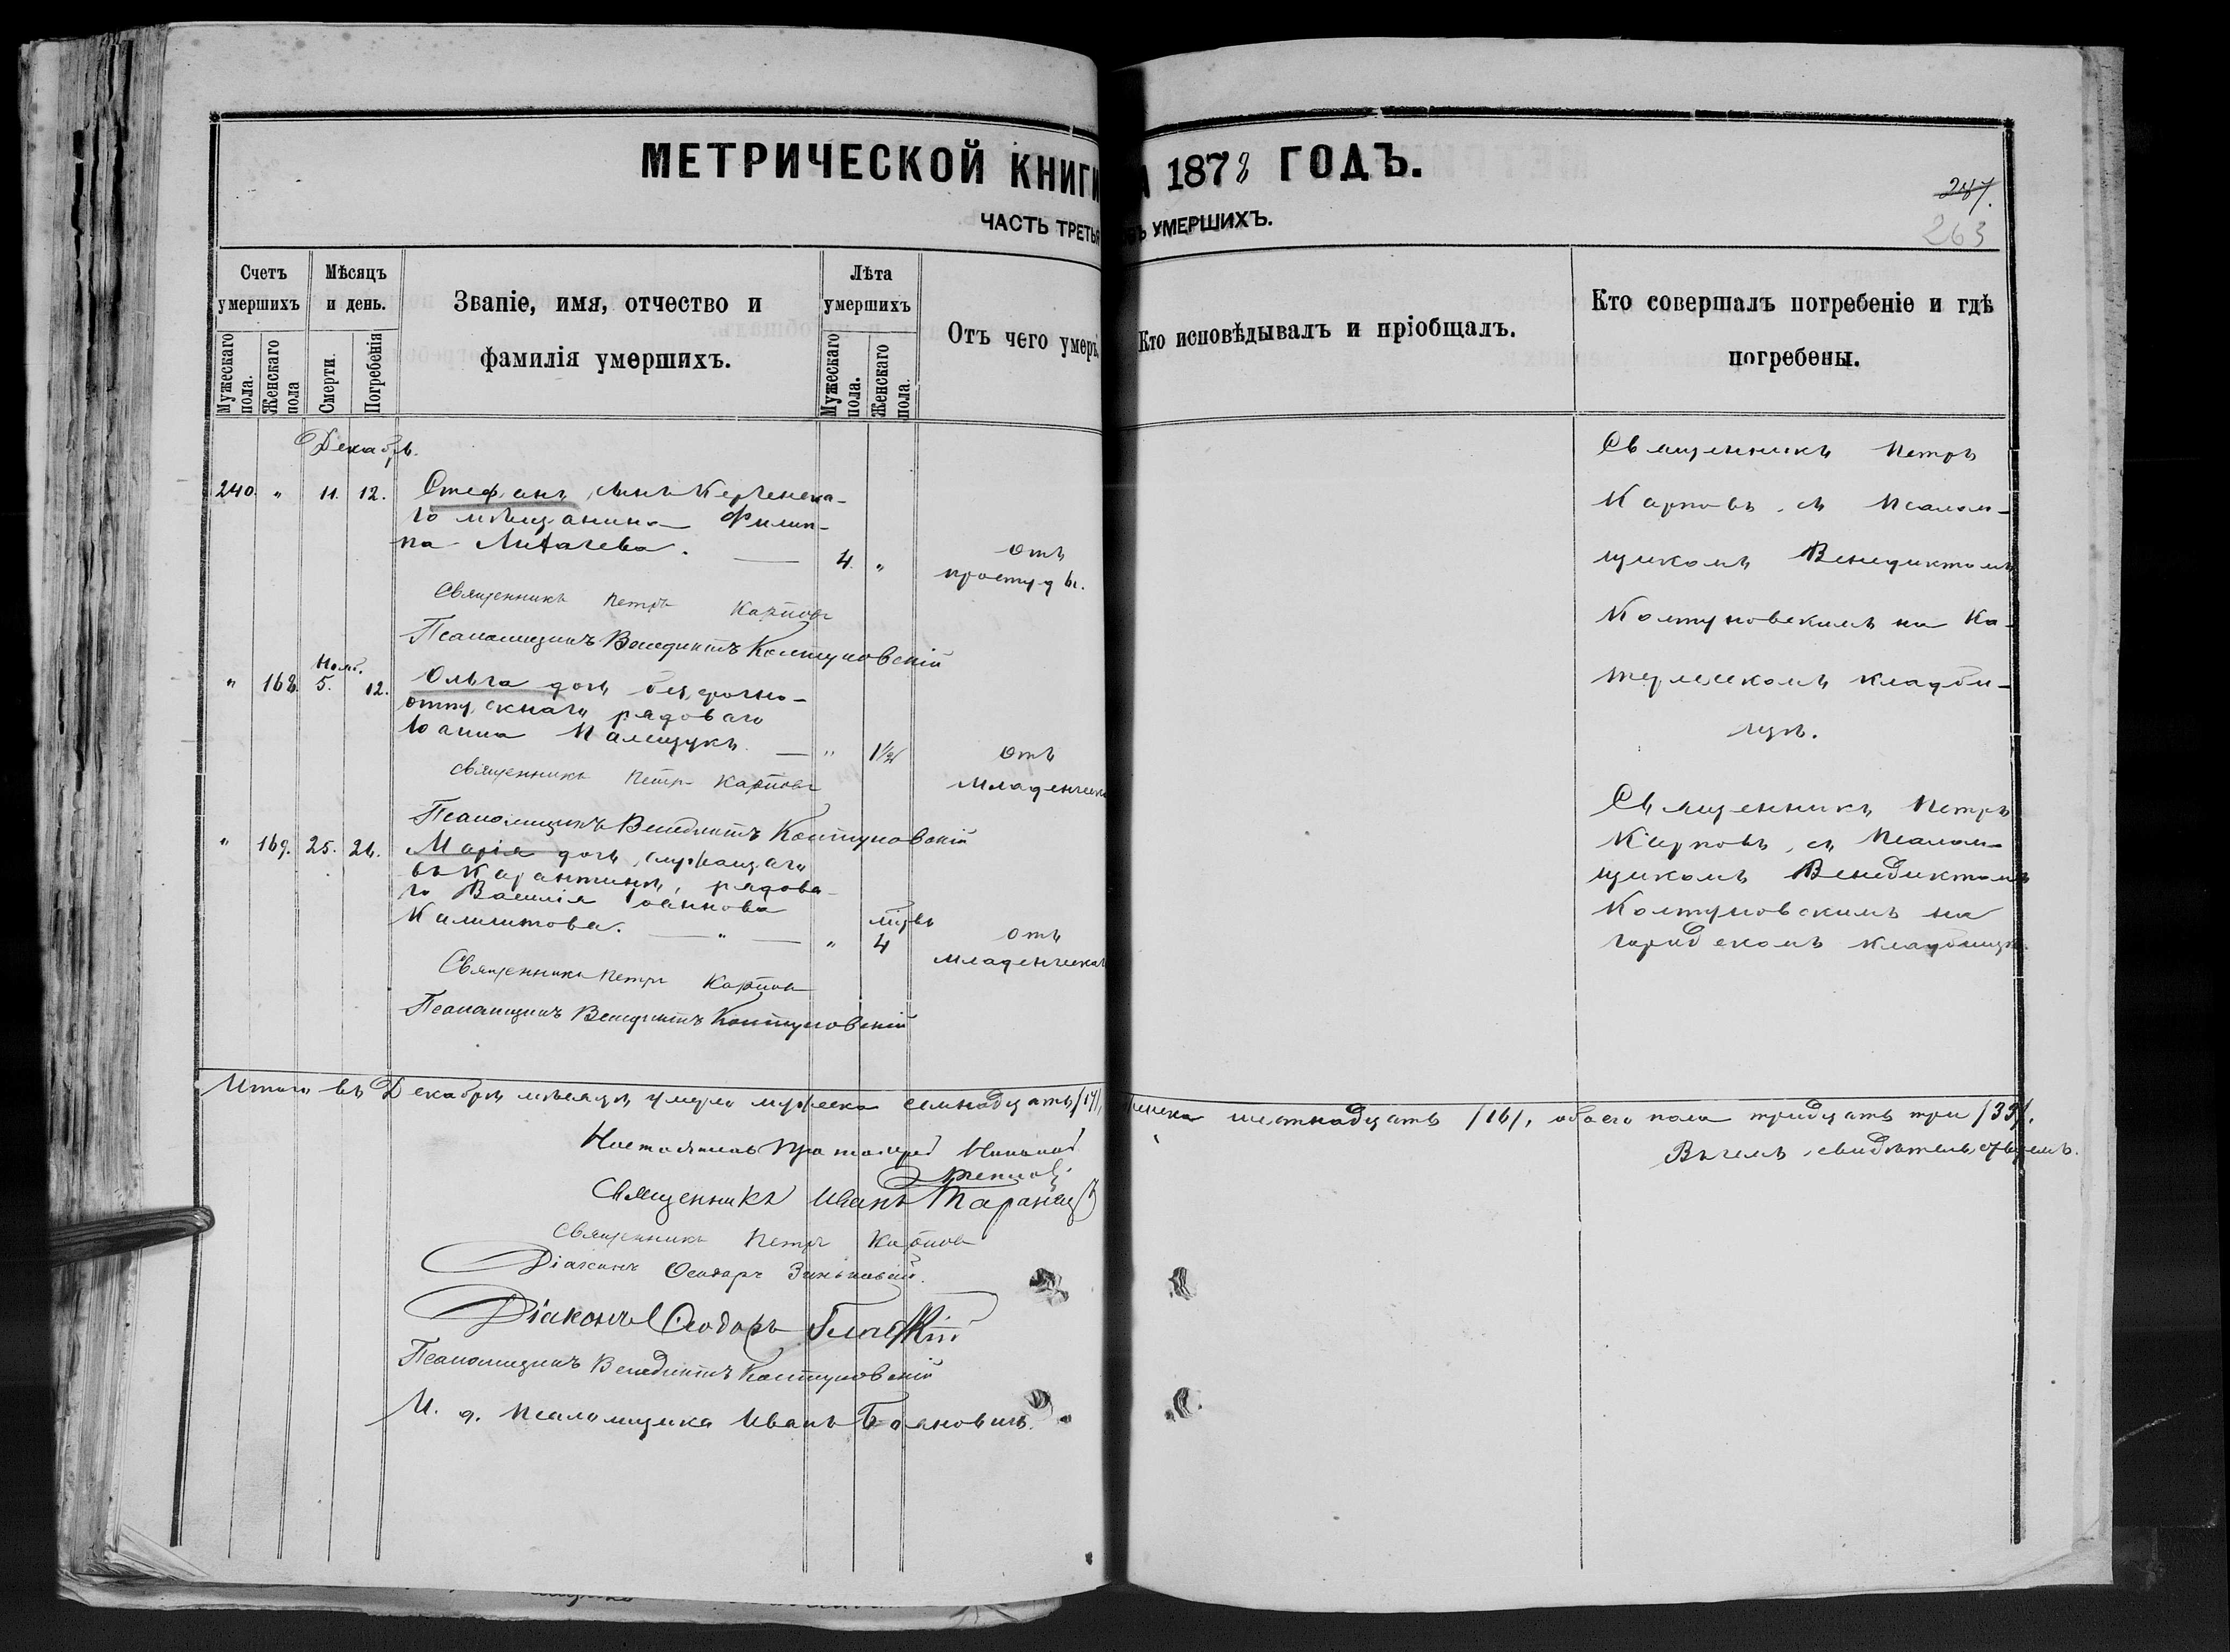 МЕТРИЧЕСКОЙ КНИГИ
1878 ГОДЪ.
ЧАСТЬ ТРЕТЬЯ
УМЕРШИХЪ.
263
Счетъ умершихъ
Мужескаго пола.
Женскаго пола
Мѣсяцъ и день.
Смерти.
Погребенія
Званіе, имя, отчество и
фамилія умершихъ.
Лѣта умершихъ
Мужескаго пола.
Женскаго пола.
Отъ чего умеръ
Кто исповѣдывалъ и пріобщалъ.
Кто совершалъ погребеніе и гдѣ
погребены.
Декабрь.
240. " 11. 12. Стефанъ, сынъ Керченска-
го мѣщанина Филип-
па Лихачева. — 4. "
отъ
простуды.
Священникъ Петръ Карповъ
Псаломщикъ Венедиктъ Колтуновскій
Священникъ Петръ
Карповъ, съ Псалом-
щикомъ Венедиктомъ
Колтуновскимъ на Ка-
кладби-
щѣ.
Нояб.
" 168. 5. 12. Ольга дочь безсрочно-
отпускнаго рядоваго
Іоанна Палищукъ. — " 1½
отъ
Младенческ
Священникъ Петръ Карповъ
Псаломщикъ Венедиктъ Колтуновскій
" 169. 25. 26. Марія дочь служащаго
въ Карантинѣ, рядова-
го Василія Іоаннова
Калмыкова. — " — " 4
отъ
младенческаго
Священникъ Петръ Карповъ
Псаломщикъ Венедиктъ Колтуновскій
Священникъ Петръ
Карповъ, съ Псалом-
щикомъ Венедиктомъ
Колтуновскимъ на
городскомъ кладбищѣ.
Итого въ Декабрѣ мѣсяцѣ умерло мужеска семнадцать /17/, женска шестнадцать /16/, обоего пола тридцать три /33/.
Въ чемъ свидѣтельствуемъ.
Настоятель Протоіерей
Священникъ Иванъ
Священникъ Петръ Карповъ
Діаконъ Ѳеодоръ Зеньковскій.
Діаконъ Ѳеодоръ
Псаломщикъ Венедиктъ Колтуновскій
И. д. псаломщика Иванъ Бояновичъ.